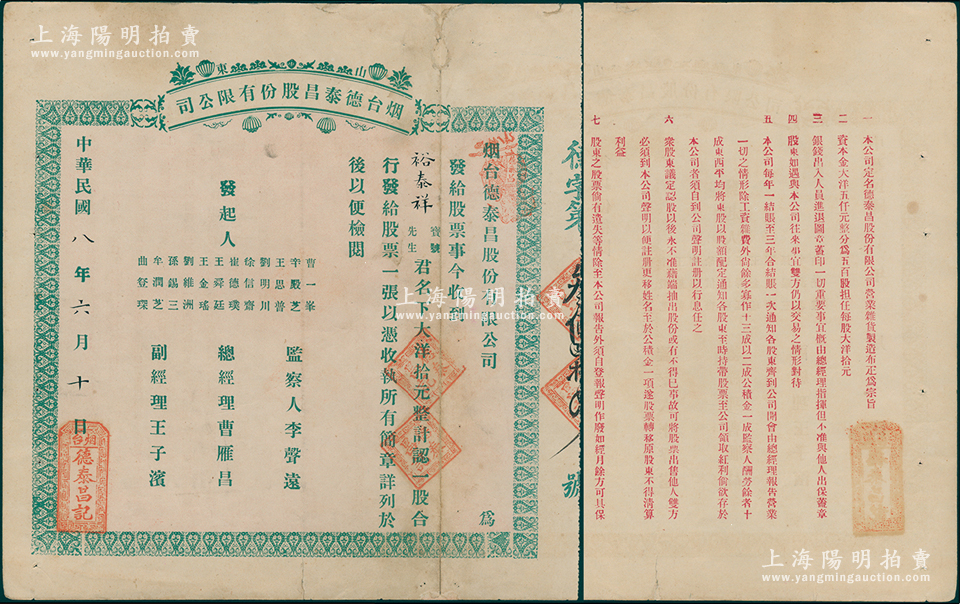 上海陽明拍賣
www.yangmingauction.com
山東
烟台德泰昌股份有限公司
烟台德泰昌股份有限公司 為
發給股票事今收到
裕泰祥 寶號 先生 君名 大洋拾元整計認一股合
行發給股票一張以憑收執所有簡章詳列於
後以便檢閱
發起人
曹一峯
辛殿芝
王思普
劉明川
徐信齋
崔德璞
王舜廷
王金瑤
劉維洲
孫錫三
牟潤芝
曲發琛
監察人李聲遠
總經理曹雁昌
副經理王子濱
中華民國八年六月十日
烟台
德泰昌記
德字第
號
一 本公司定名德泰昌股份有限公司營業雜貨製造布疋爲宗旨
二 資本金大洋五仟元整分爲五百股担任每股大洋拾元
三 銀錢出入人員進退圖章蓋印一切重要事宜概由總經理指揮但不准與他人出保蓋章
四 股東如遇與本公司往來事宜雙方仍以交易之情形對待
五 本公司每年一結賬至三年合結賬一次通知各股東齊到公司開會由總經理報告營業
一切之情形除工資雜費外尙餘多寡作十三成以二成公積金一成監察人酬勞餘者十
成東西平均將東股以股額配定通知各股東至時持帶股票至公司領取紅利倘欲存於
本公司者須自到公司聲明註册以行息任之
六 衆股東議定認股以後永不准藉端抽出股份或有不得已事故可將股票出售他人雙方
必須到本公司聲明以便註册更移姓名至於公積金一項遂股票轉移原股東不得淸算
利益
七 股東之股票倘有遺失等情除至本公司報告外須自登報聲明作廢如經月餘方可具保
上海陽明拍賣
www.yangmingauction.com